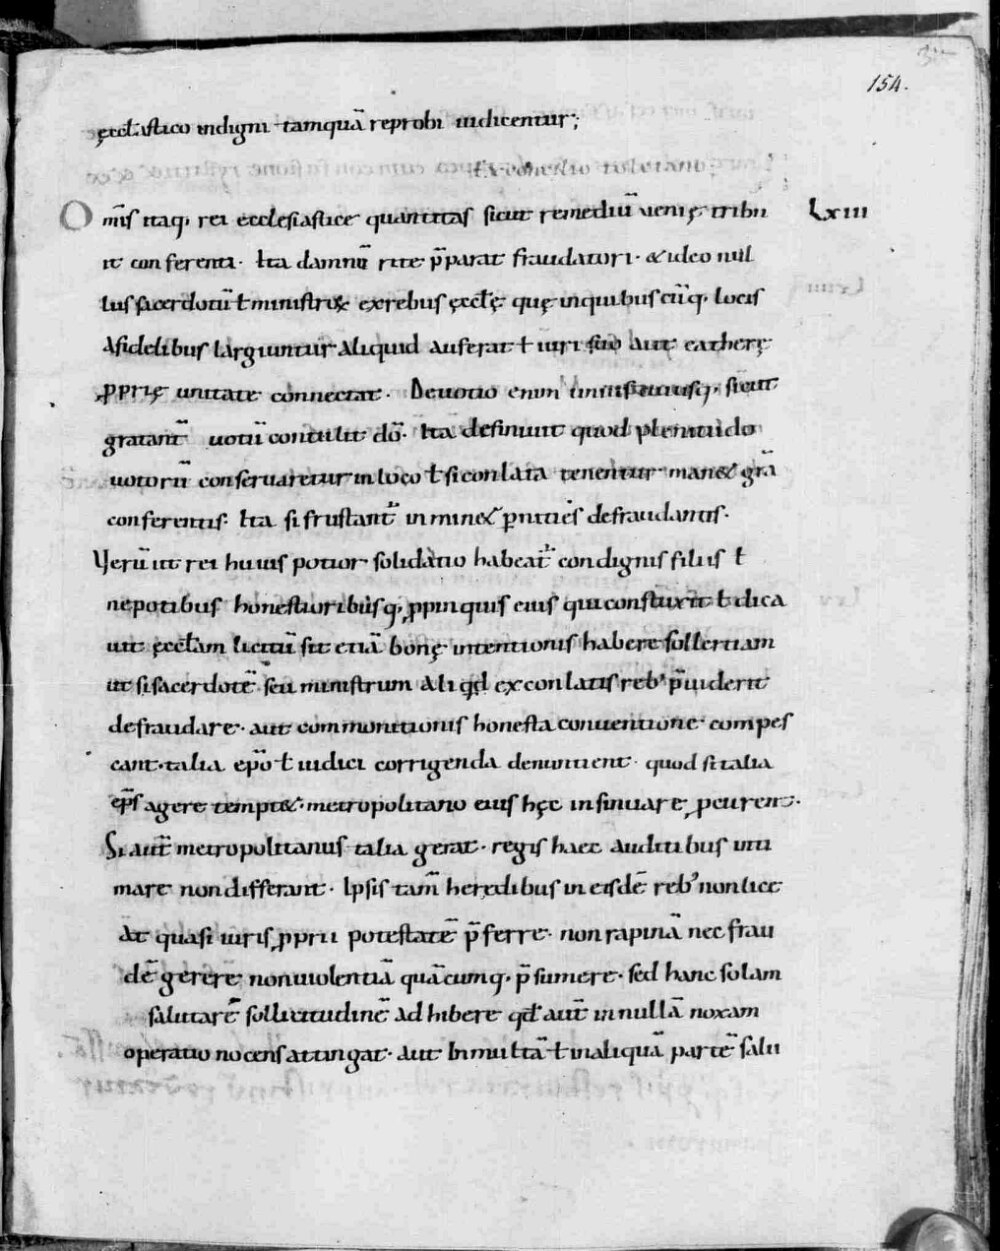 154.
ęccl̄astico indigni tamquā reprobi iudicentur;
Ex concilio toletano;
Om̄s itaq. rei ecclesiastice quantitas sicut remediū uenię tribu Lxiii
it conferenti. Ita damnū rite p̄parat fraudatori. & ideo nul
lus sacerdotū ł ministror̄ ex rebus ęccl̄ę quę in quibuscūq. locis
A fidelibus largiuntur aliquid auferat ł iuri suo aut catherę
ꝓprię unitate connectat. Deuotio enim uniuscuiusq. sicut
gratant̄ uotū contulit dō. Ita definiuit quod plenitudo
uotorū conseruaretur in loco ł si conlata tenentur man& grā
conferentis. Ita si frustant̄ inmin& ꝑnities defraudantis.
Verū ut rei huius potior solidatio habeat̄ condignis filiis ł
nepotibus honestioribusq. ꝓpinquis eius qui construxit ł dica
uit ęccl̄am licitū sit etiā bonę intentionis habere sollertiam
ut si sacerdotē seu ministrum aliqđ ex conlatis reb' p̄uiderit
defraudare. aut commonitionis honesta conuentione compes
cant. talia ep̄o ł iudici corrigenda denuntient. quod si talia
ep̄s agere tempt&. metropolitano eius hęc insinuare ꝓcurent.
Si aut̄ metropolitanus talia gerat. regis haec auditibus inti
mare non differant. Ipsis tam̄ heredibus in eisdē reb' non lice
At quasi iuris ꝓprii potestatē p̄ferre. non rapinā nec frau
dē gerere non uiolentiā quācumq. p̄sumere. sed hanc solam
salutarē sollicitudinē adhibere qđ aut̄ in nullā noxam
operatio nocens attingat. aut In multā ł in aliquā partē salu